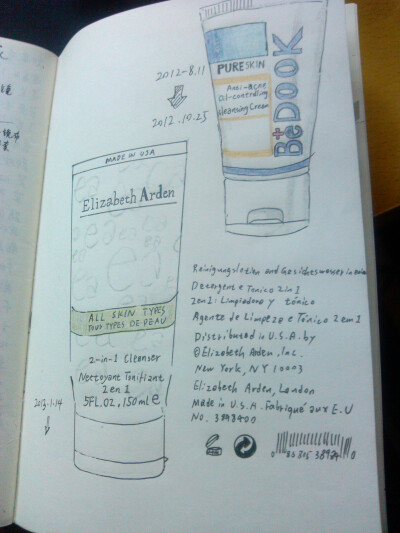 2012-8.11
2012.10.25
PURE SKIN
Anti-Acne
Oil-controlling
Cleansing Cream
BeDOOK
MADE IN USA
Elizabeth Arden
ALL SKIN TYPES
TOUS TYPES DE PEAU
2-in-1 Cleanser
Nettoyant Tonifiant
2 en 1
5FL.OZ, 150ml e
2013.1.14
Reinigungslotion and Gesichtswasser in einem
Detergente Tonico 2 in 1
2 en 1: Limpiadora y tónico
Agente de Limpeza e Tónico 2 em 1
Distributed in U.S.A. by
©Elizabeth Arden, Inc.
New York, NY 10003
Elizabeth Arden, London
Made in U.S.A. Fabriqué aux E-U
No. 3898400